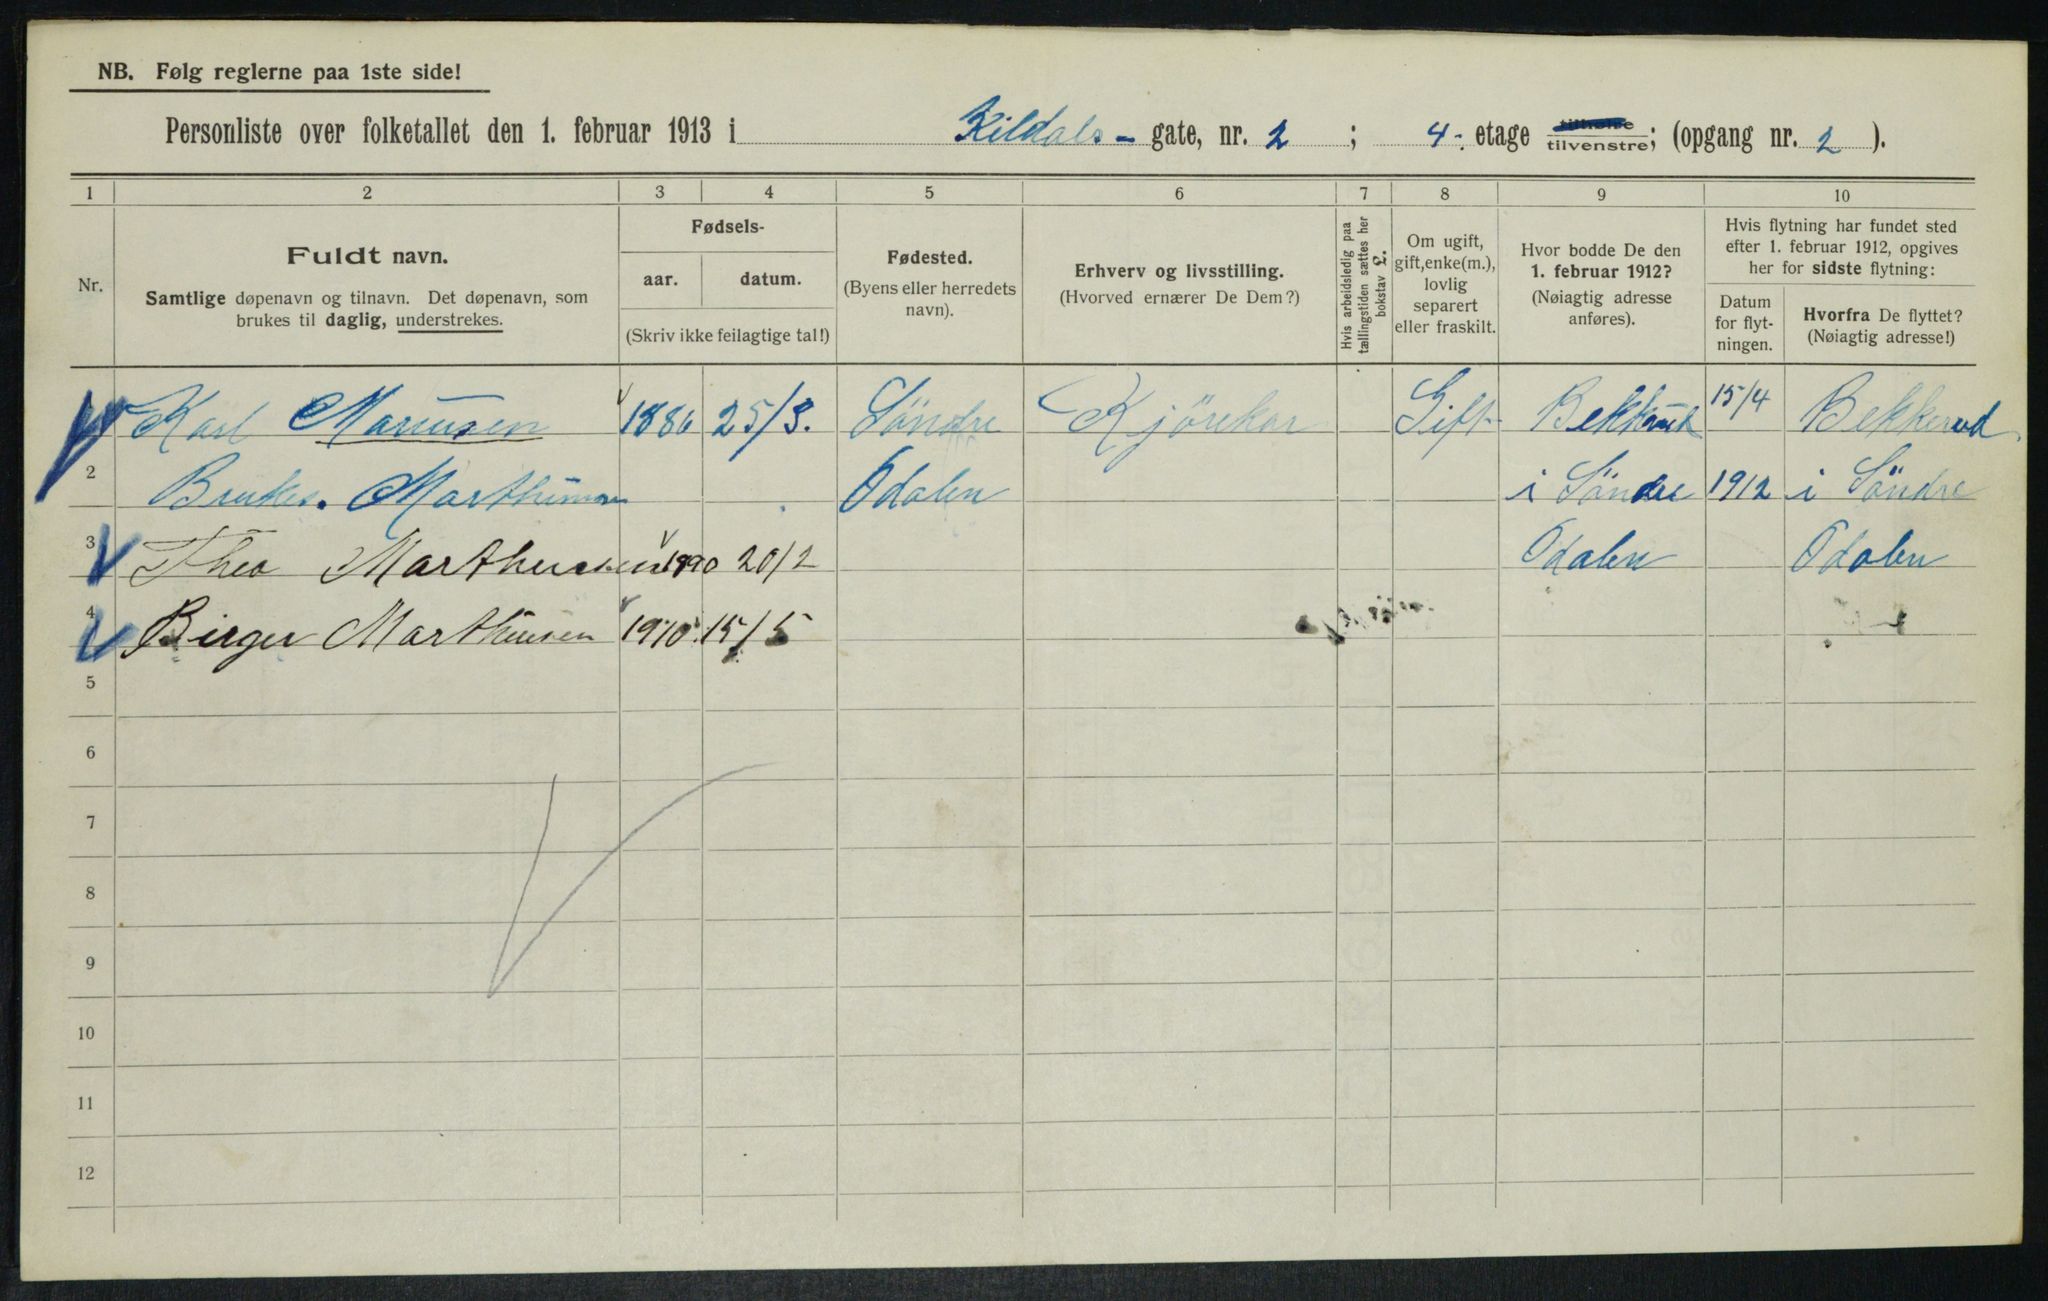 NB. Følg reglerne paa 1ste side!
Personliste over folketallet den 1. februar 1913 i Kildals- gate, nr. 2 ; 4. etage tilhøire tilvenstre; (opgang nr. 2 ).
1 2 3 4 5 6 7 8 9 10
Nr.
Fuldt navn.
Samtlige døpenavn og tilnavn. Det døpenavn, som
brukes til daglig, understrekes.
Fødsels-
aar. datum.
(Skriv ikke feilagtige tal!)
Fødested.
(Byens eller herredets
navn).
Erhverv og livsstilling.
(Hvorved ernærer De Dem?)
Hvis arbeidsledig paa
tællingstiden sættes her
bokstav L.
Om ugift,
gift, enke(m.),
lovlig
separert
eller fraskilt.
Hvor bodde De den
1. februar 1912?
(Nøiagtig adresse
anføres).
Hvis flytning har fundet sted
efter 1. februar 1912, opgives
her for sidste flytning:
Datum
for flyt-
ningen.
Hvorfra De flyttet?
(Nøiagtig adresse!)
Karl Mariusen 1886 25/3. Söndre Kjörekar Gift Bekkerud 15/4 Bekkerud
2 Brukes. Marthinsen Odalen i Söndre 1912 i Söndre
3 Thea Marthinsen 1890 20/2 Odalen Odalen
4 Birger Marthinsen 1910 15/5
5
6
7
8
9
10
11
12